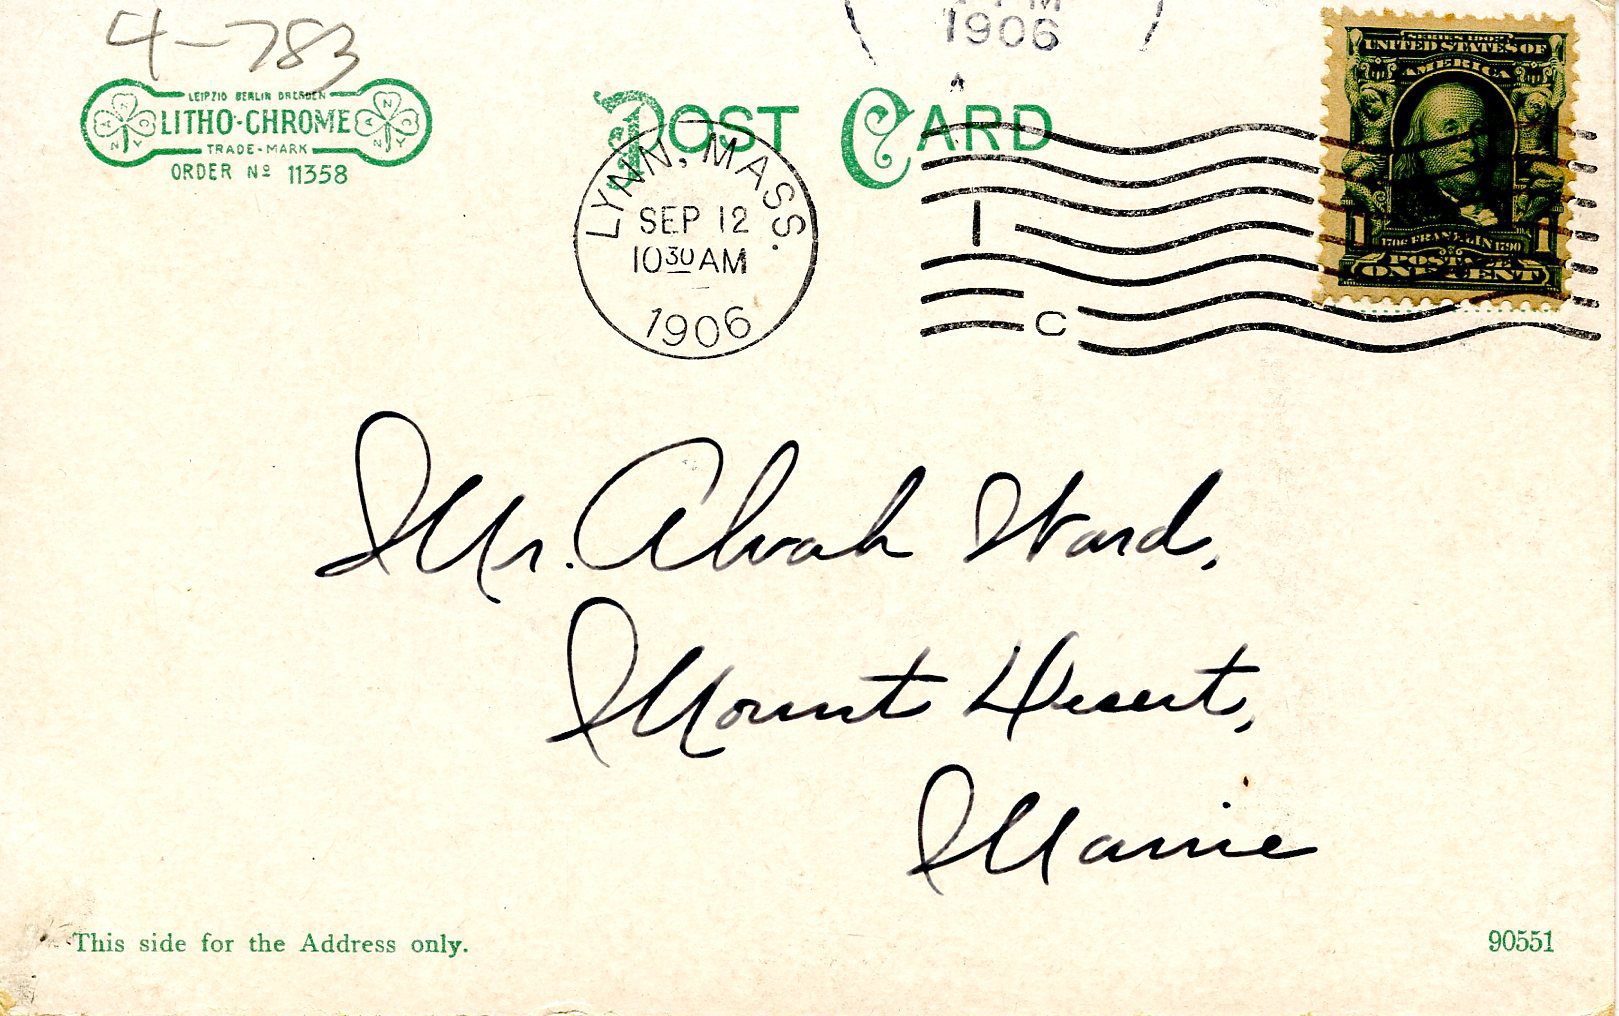 4-783
LEIPZIG BERLIN DRESDEN
LITHO-CHROME
TRADE-MARK
ORDER Nº 11358
POST CARD
1906
LYNN, MASS.
SEP 12
10 30 AM
1906
1
C
SERIES 1902
UNITED STATES OF
AMERICA
1706 FRANKLIN 1790
1 1
POSTAGE
ONE CENT
Mr. Alvah Ward,
Mount Desert,
Maine
This side for the Address only.
90551